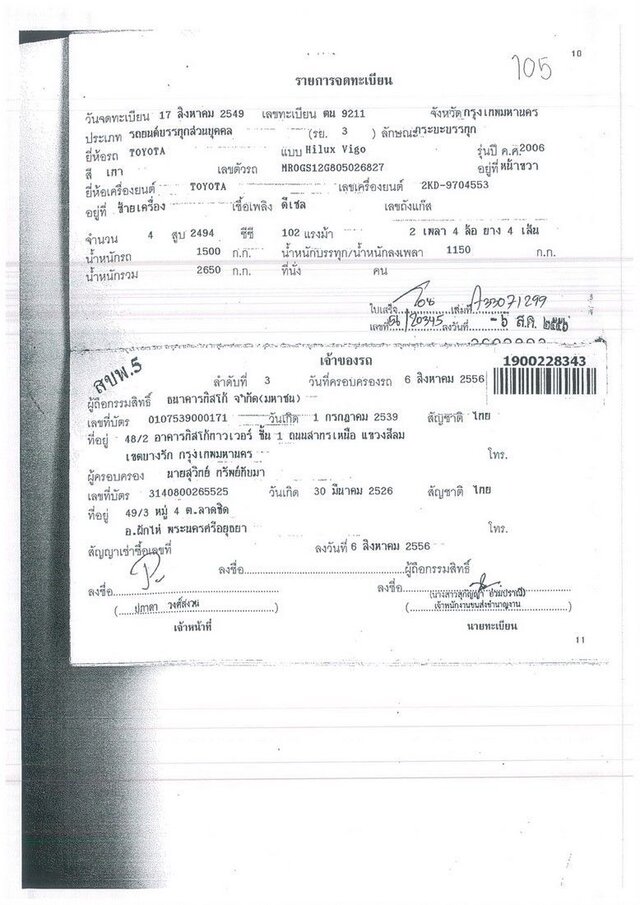 10
105
รายการจดทะเบียน
วันจดทะเบียน 17 สิงหาคม 2549 เลขทะเบียน ตน 9211 จังหวัด กรุงเทพมหานคร
ประเภท รถยนต์บรรทุกส่วนบุคคล (รย. 3 ) ลักษณะ กระบะบรรทุก
ยี่ห้อรถ TOYOTA แบบ Hilux Vigo รุ่นปี ค.ศ. 2006
สี เทา เลขตัวรถ MR0GS12G805026827 อยู่ที่ หน้าขวา
ยี่ห้อเครื่องยนต์ TOYOTA เลขเครื่องยนต์ 2KD-9704553
อยู่ที่ ซ้ายเครื่อง เชื้อเพลิง ดีเซล เลขถังแก๊ส
จำนวน 4 สูบ 2494 ซีซี 102 แรงม้า 2 เพลา 4 ล้อ ยาง 4 เส้น
น้ำหนักรถ 1500 ก.ก. น้ำหนักบรรทุก/น้ำหนักลงเพลา 1150 ก.ก.
น้ำหนักรวม 2650 ก.ก. ที่นั่ง คน
ใบเสร็จ เล่มที่ A33071299
เลขที่ 56/20345 ลงวันที่ -6 ส.ค. ๒๕๕๖
สบพ.5
เจ้าของรถ
1900228343
ลำดับที่ 3 วันที่ครอบครองรถ 6 สิงหาคม 2556
ผู้ถือกรรมสิทธิ์ ธนาคารทิสโก้ จำกัด(มหาชน)
เลขที่บัตร 0107539000171 วันเกิด 1 กรกฎาคม 2539 สัญชาติ ไทย
ที่อยู่ 48/2 อาคารทิสโก้ทาวเวอร์ ชั้น 1 ถนนสาทรเหนือ แขวงสีลม
เขตบางรัก กรุงเทพมหานคร โทร.
ผู้ครอบครอง นายสุวิทย์ ทรัพย์ทับมา
เลขที่บัตร 3140800265525 วันเกิด 30 มีนาคม 2526 สัญชาติ ไทย
ที่อยู่ 49/3 หมู่ 4 ต.ลาดชิด
อ.ผักไห่ พระนครศรีอยุธยา โทร.
สัญญาเช่าซื้อเลขที่ ลงวันที่ 6 สิงหาคม 2556
ลงชื่อ ผู้ถือกรรมสิทธิ์
ลงชื่อ ลงชื่อ
( ปภาดา วงศ์สงวน ) (นางสาวสุกัญญา อ่วมปราณี)
เจ้าพนักงานขนส่งชำนาญงาน
เจ้าหน้าที่ นายทะเบียน
11